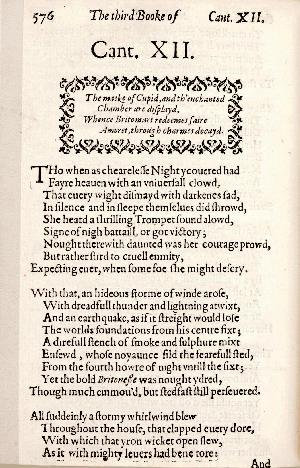 576 The third Booke of Cant. XII.
Cant. XII.
The maske of Cupid, and th'enchanted
Chamber are displayd,
Whence Britomart redeemes faire
Amoret, through charmes decayd.
THo when as chearelesse Night ycouered had
Fayre heauen with an vniuersall clowd,
That euery wight dismayd with darkenes sad,
In silence and in sleepe themselues did shrowd,
She heard a shrilling Trompet sound alowd,
Signe of nigh battaill, or got victory;
Nought therewith daunted was her courage prowd,
But rather stird to cruell enmity,
Expecting euer, when some foe she might descry.
With that, an hideous storme of winde arose,
With dreadfull thunder and lightning atwixt,
And an earthquake, as if it streight would lose
The worlds foundations from his centre fixt;
A direfull stench of smoke and sulphure mixt
Ensewd, whose noyaunce fild the fearefull sted,
From the fourth howre of night vntill the sixt;
Yet the bold Britonesse was nought ydred,
Though much emmou'd, but stedfast still perseuered.
All suddeinly a stormy whirlwind blew
Throughout the house, that clapped euery dore,
With which that yron wicket open flew,
As it with mighty leuers had bene tore:
And